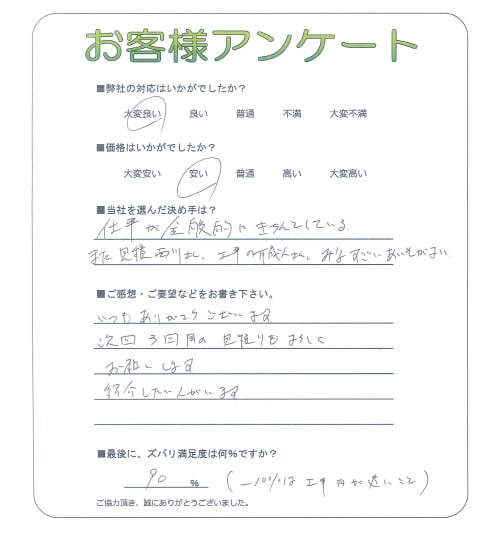 お客様アンケート
■弊社の対応はいかがでしたか？
大変良い 良い 普通 不満 大変不満
■価格はいかがでしたか？
大変安い 安い 普通 高い 大変高い
■当社を選んだ決め手は？
仕事が全般的にきちんとしている
また見積 西川さん、工事の さん、みなすごいあいそがよい
■ご感想・ご要望などをお書き下さい。
いつもありがとうございます
次回3回目の見積りもよろしく
お願いします
紹介したい人がいます
■最後に、ズバリ満足度は何％ですか？
90 ％ (－10%は工事日が遠いこと)
ご協力頂き、誠にありがとうございました。